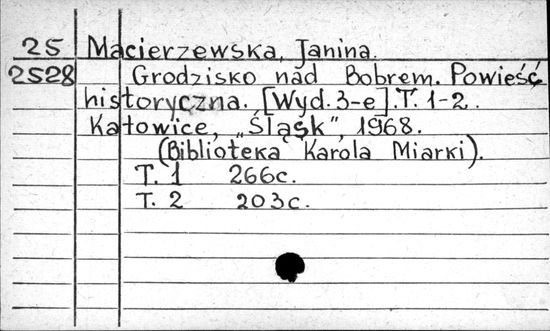 25 Macierzewska, Janina.
2528 Grodzisko nad Bobrem. Powieść
historyczna. [Wyd. 3-e]. T. 1-2.
Katowice, „Śląsk”, 1968.
(Biblioteka Karola Miarki).
T. 1 266c.
T. 2 203c.